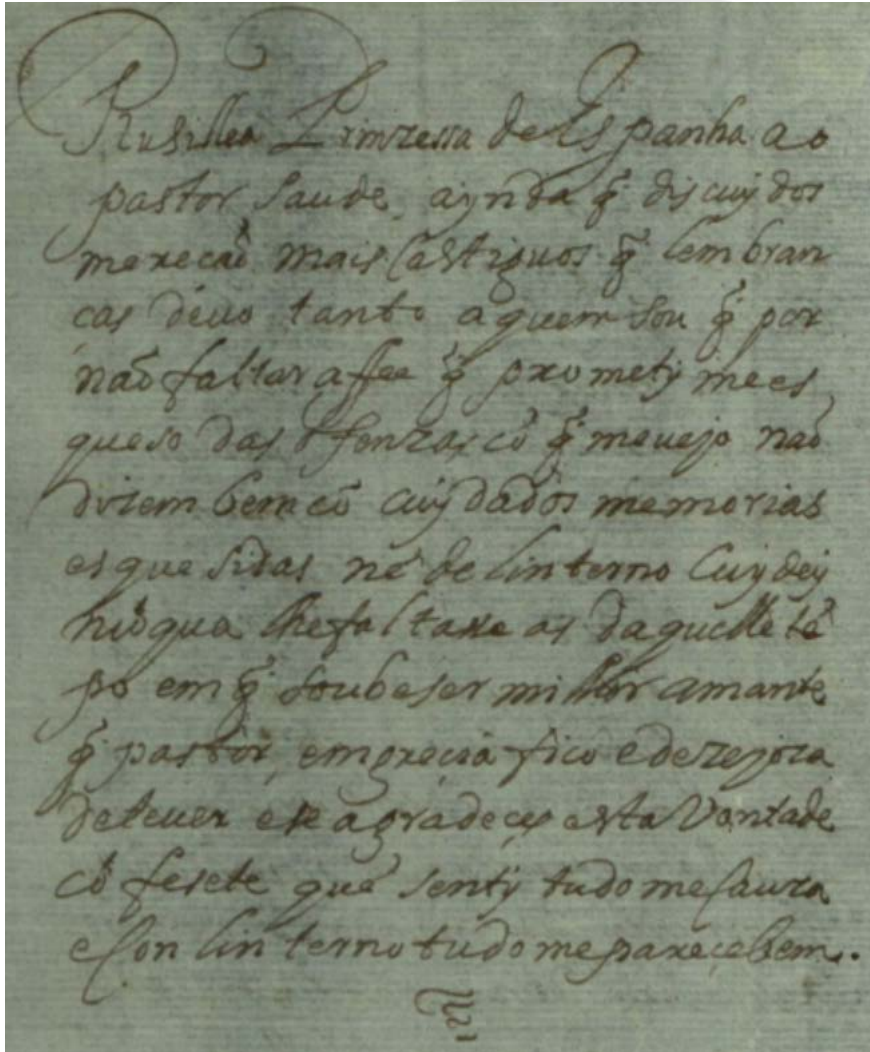 Rusilea Primzessa de Espanha ao
pastor, saude, aynda q̃ discuydos
mereçaõ mais Castiguos q̃ lembran
cas deuo tanto aquem sou q̃ por
naõ faltar afee q̃ promety mees
queso das ofenzas cõ q̃ meuejo naõ
dizem bem cõ cuydados memorias
esquesidas nẽ de linterno Cuydey
nũqua lhefaltaxe as daquelle tẽ
po em q̃ soubeser milhor amante
q̃ pastor, emgrecia fico edezejoza
deteuer ese agradeçes esta Vontade
cõ fesete que senty tudo me Cauza
e Con linterno tudo mepareçebem.